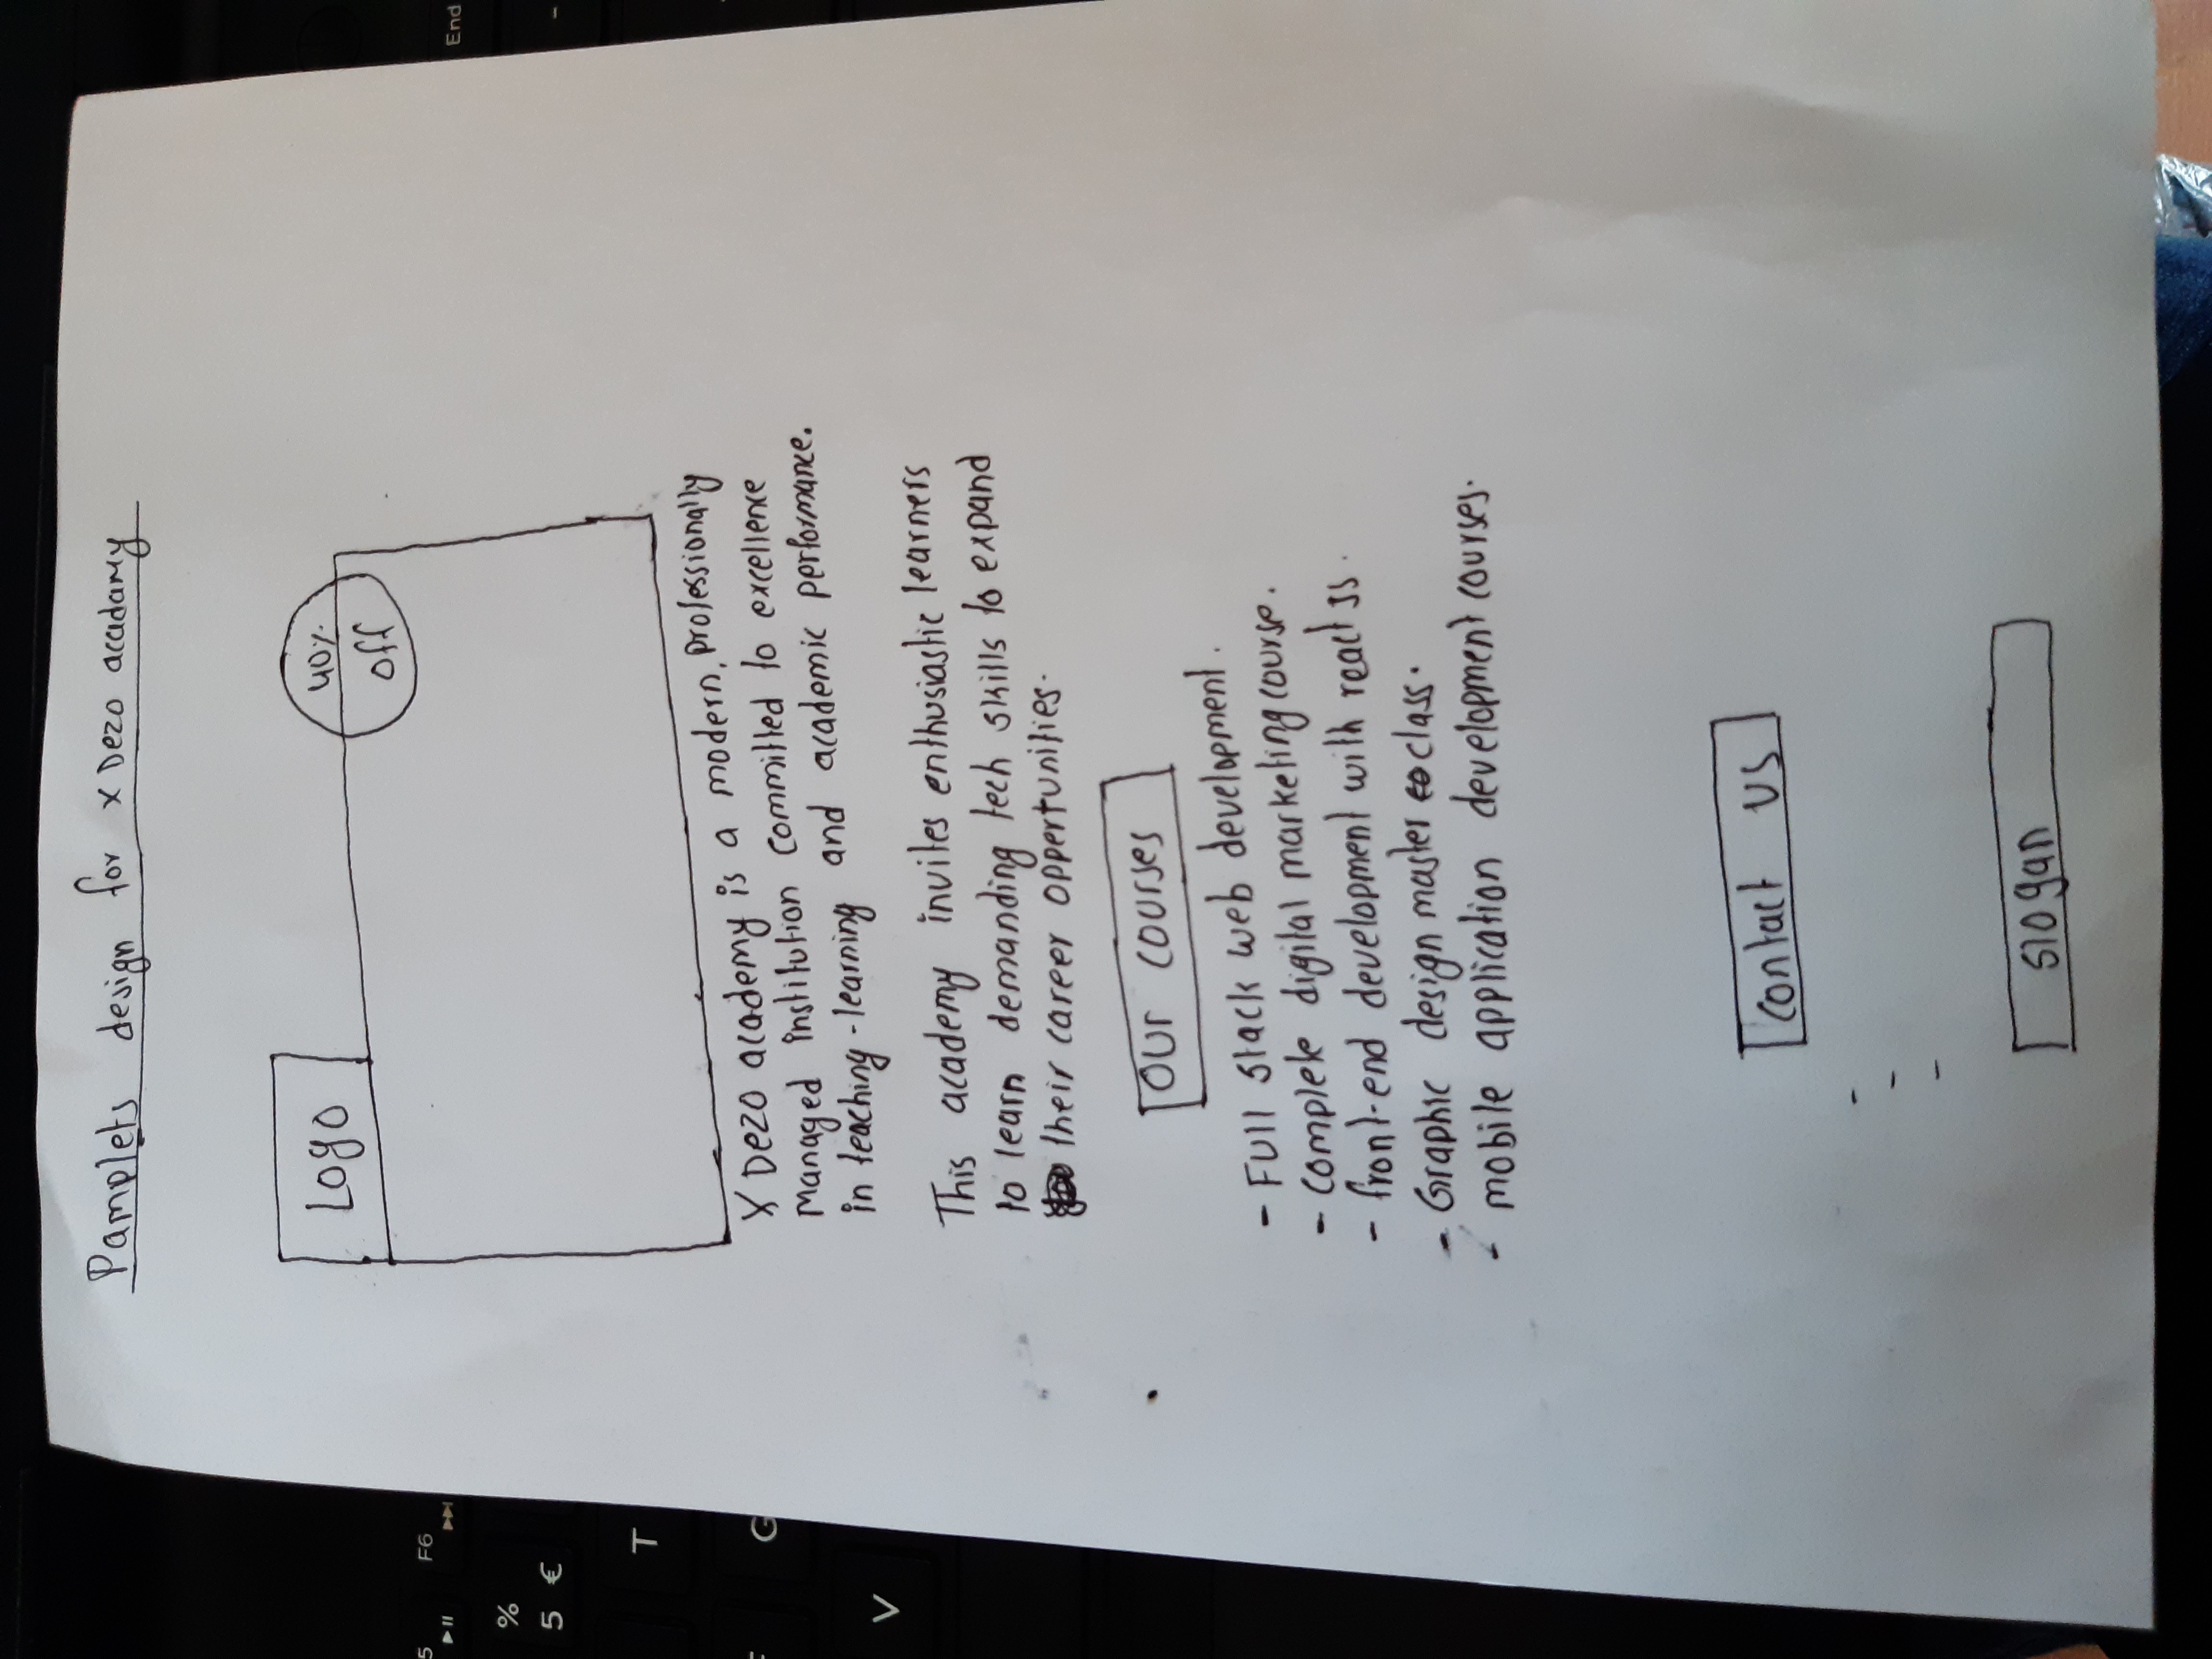 Pamplets design for X Dezo acadamy
Logo
40%
off
X Dezo academy is a modern, professionally
managed institution committed to excellence
in teaching-learning and academic performance.
This academy invites enthusiastic learners
to learn demanding tech skills to expand
their career oppertunities.
OUR COURSES
- Full stack web development.
- complete digital marketing course.
- front-end development with react JS.
- Graphic design master class.
- mobile application development courses.
contact us
-
-
-
slogan
5
F6
%
5 €
T
F
G
V
End
-